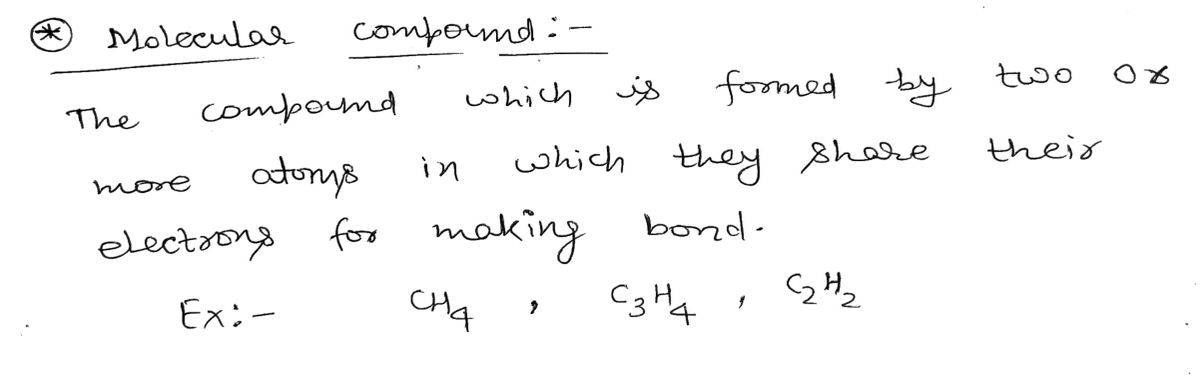 ⊛ Molecular compound :-
The compound which is formed by two or
more atoms in which they share their
electrons for making bond.
Ex:- CH₄ , C₃H₄ , C₂H₂